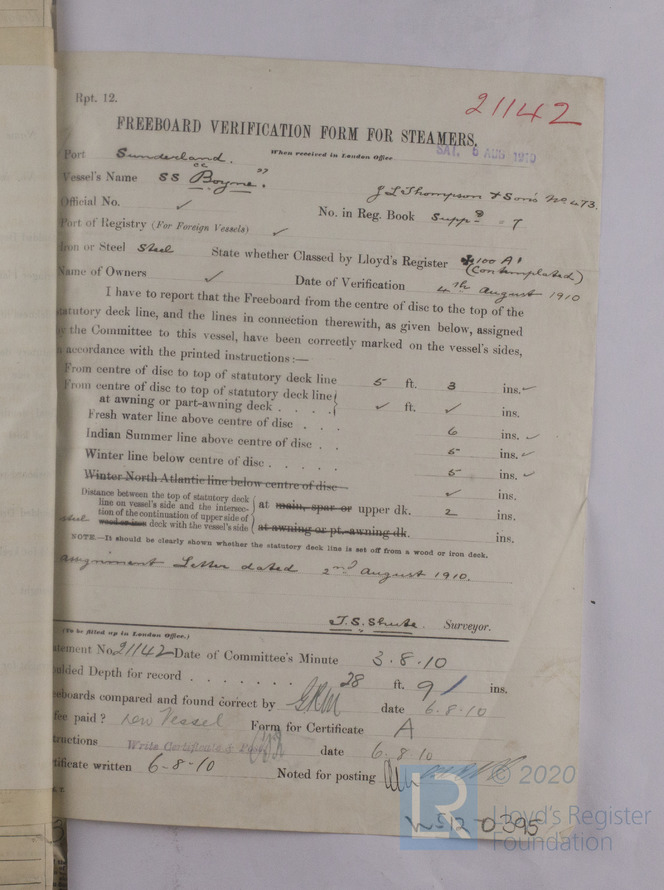 Rpt. 12.
21142
FREEBOARD VERIFICATION FORM FOR STEAMERS.
Port Sunderland. When received in London Office SAT. 6 AUG 1910
Vessel's Name SS "Boyne". J L Thompson & Sons No 473.
Official No. ✓ No. in Reg. Book Supp - 7
Port of Registry (For Foreign Vessels) ✓
Iron or Steel Steel State whether Classed by Lloyd's Register ✠100 A1
(Contemplated)
Name of Owners ✓ Date of Verification 4th August 1910
I have to report that the Freeboard from the centre of disc to the top of the
statutory deck line, and the lines in connection therewith, as given below, assigned
by the Committee to this vessel, have been correctly marked on the vessel's sides,
n accordance with the printed instructions:—
From centre of disc to top of statutory deck line 5 ft. 3 ins. ✓
From centre of disc to top of statutory deck line
at awning or part-awning deck . . . . ✓ ft. ✓ ins.
Fresh water line above centre of disc . . . 6 ins. ✓
Indian Summer line above centre of disc . . 5 ins. ✓
Winter line below centre of disc . . . . . 5 ins. ✓
Winter North Atlantic line below centre of disc ✓ ins.
Distance between the top of statutory deck
line on vessel's side and the intersec- at main, spar or upper dk. 2 ins.
tion of the continuation of upper side of
steel wood or iron deck with the vessel's side at awning or pt.-awning dk. ins.
NOTE.—It should be clearly shown whether the statutory deck line is set off from a wood or iron deck.
Assignment Letter dated 2nd August 1910.
J. S. Shute. Surveyor.
(To be filled up in London Office.)
atement No. 21142 Date of Committee's Minute 3.8.10
oulded Depth for record . . . . . . . 28 ft. 9 ins.
eeboards compared and found correct by date 6.8.10
fee paid? new Vessel Form for Certificate A
tructions Write Certificate & date 6.8.10
tificate written 6-8-10 Noted for posting
© 2020
LR
Lloyd's Register
Foundation
W512-0395